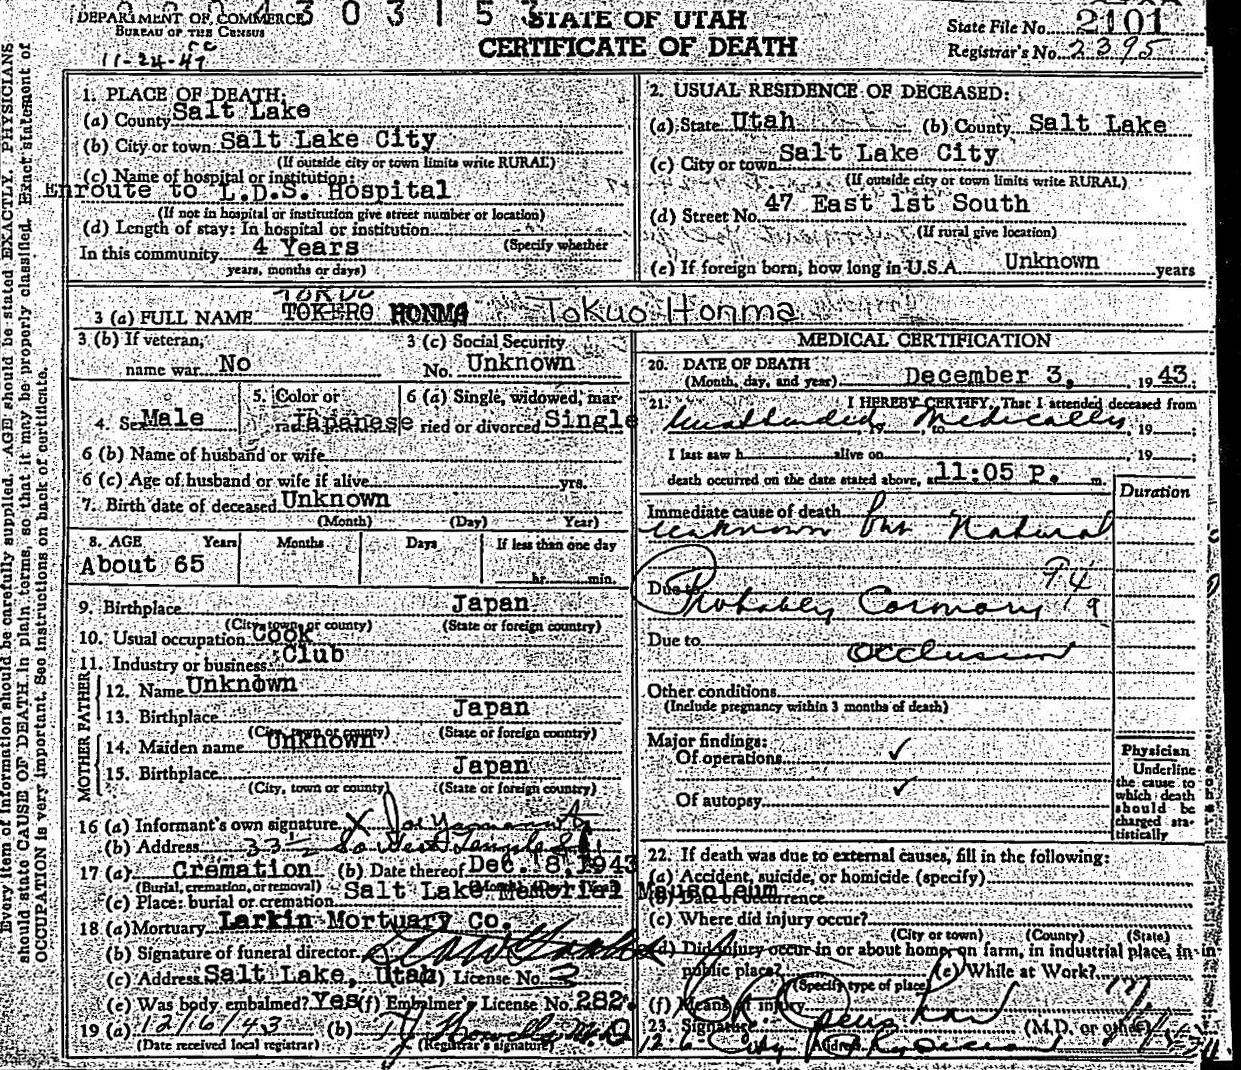 DEPARTMENT OF COMMERCE
BUREAU OF THE CENSUS
11-24-47
STATE OF UTAH
CERTIFICATE OF DEATH
State File No. 2101
Registrar's No. 2395
Every item of information should be carefully supplied. AGE should be stated EXACTLY. PHYSICIANS
should state CAUSE OF DEATH in plain terms, so that it may be properly classified. Exact statement of
OCCUPATION is very important. See instructions on back of certificate.
1. PLACE OF DEATH:
(a) County Salt Lake
(b) City or town Salt Lake City
(If outside city or town limits write RURAL)
(c) Name of hospital or institution:
Enroute to L.D.S. Hospital
(If not in hospital or institution give street number or location)
(d) Length of stay: In hospital or institution
(Specify whether
In this community 4 Years
years, months or days)
2. USUAL RESIDENCE OF DECEASED:
(a) State Utah (b) County Salt Lake
(c) City or town Salt Lake City
(If outside city or town limits write RURAL)
(d) Street No. 47 East 1st South
(If rural give location)
(e) If foreign born, how long in U.S.A. Unknown years
3 (a) FULL NAME TOKERO HONMA Tokuo Honma
3 (b) If veteran, name war No
3 (c) Social Security No. Unknown
4. Sex Male
5. Color or race Japanese
6 (a) Single, widowed, married or divorced Single
6 (b) Name of husband or wife
6 (c) Age of husband or wife if alive yrs.
7. Birth date of deceased Unknown
(Month) (Day) Year)
8. AGE Years Months Days If less than one day
About 65
hr. min.
9. Birthplace Japan
(City, town or county) (State or foreign country)
10. Usual occupation Cook
11. Industry or business Club
FATHER
12. Name Unknown
13. Birthplace Japan
(City, town or county) (State or foreign country)
MOTHER
14. Maiden name Unknown
15. Birthplace Japan
(City, town or county) (State or foreign country)
16 (a) Informant's own signature X
(b) Address
17 (a) Cremation (b) Date thereof Dec. 18, 1943
(Burial, cremation, or removal)
(c) Place: burial or cremation Salt Lake Memorial Mausoleum
18 (a) Mortuary Larkin Mortuary Co.
(b) Signature of funeral director
(c) Address Salt Lake, Utah License No. 3
(e) Was body embalmed? Yes (f) Embalmer's License No. 282.
19 (a) 12/6/43 (b) M.D.
(Date received local registrar) (Registrar's signature)
MEDICAL CERTIFICATION
20. DATE OF DEATH
(Month, day, and year) December 3, 1943;
21. I HEREBY CERTIFY, That I attended deceased from
Unattended, 19 , to Medically, 19 ;
I last saw h alive on , 19 ;
death occurred on the date stated above, at 11:05 P. m.
Duration
Immediate cause of death
unknown but Natural
Due to Probably Coronary
Due to occlusion
Other conditions
(Include pregnancy within 3 months of death)
Major findings:
Of operations ✓
Of autopsy ✓
Physician
Underline
the cause to
which death
should be
charged sta-
tistically
22. If death was due to external causes, fill in the following:
(a) Accident, suicide, or homicide (specify)
(b) Date of occurrence
(c) Where did injury occur?
(City or town) (County) (State)
(d) Did injury occur in or about home, on farm, in industrial place, in
public place? (e) While at Work?
(Specify type of place)
(f) Means of injury
23. Signature (M.D. or other)
12-6 City Physician
Address